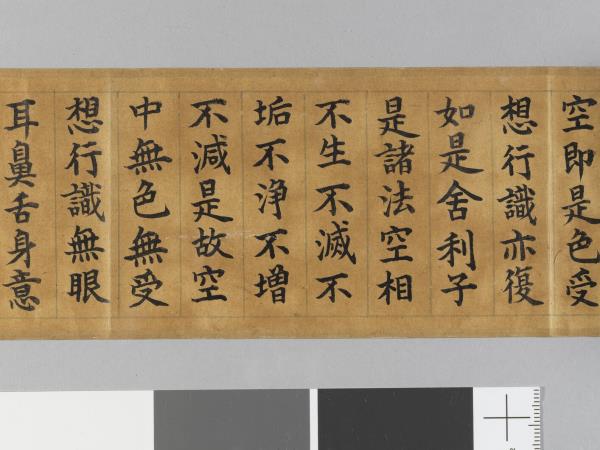 空即是色受
想行識亦復
如是舍利子
是諸法空相
不生不滅不
垢不浄不増
不減是故空
中無色無受
想行識無眼
耳鼻舌身意